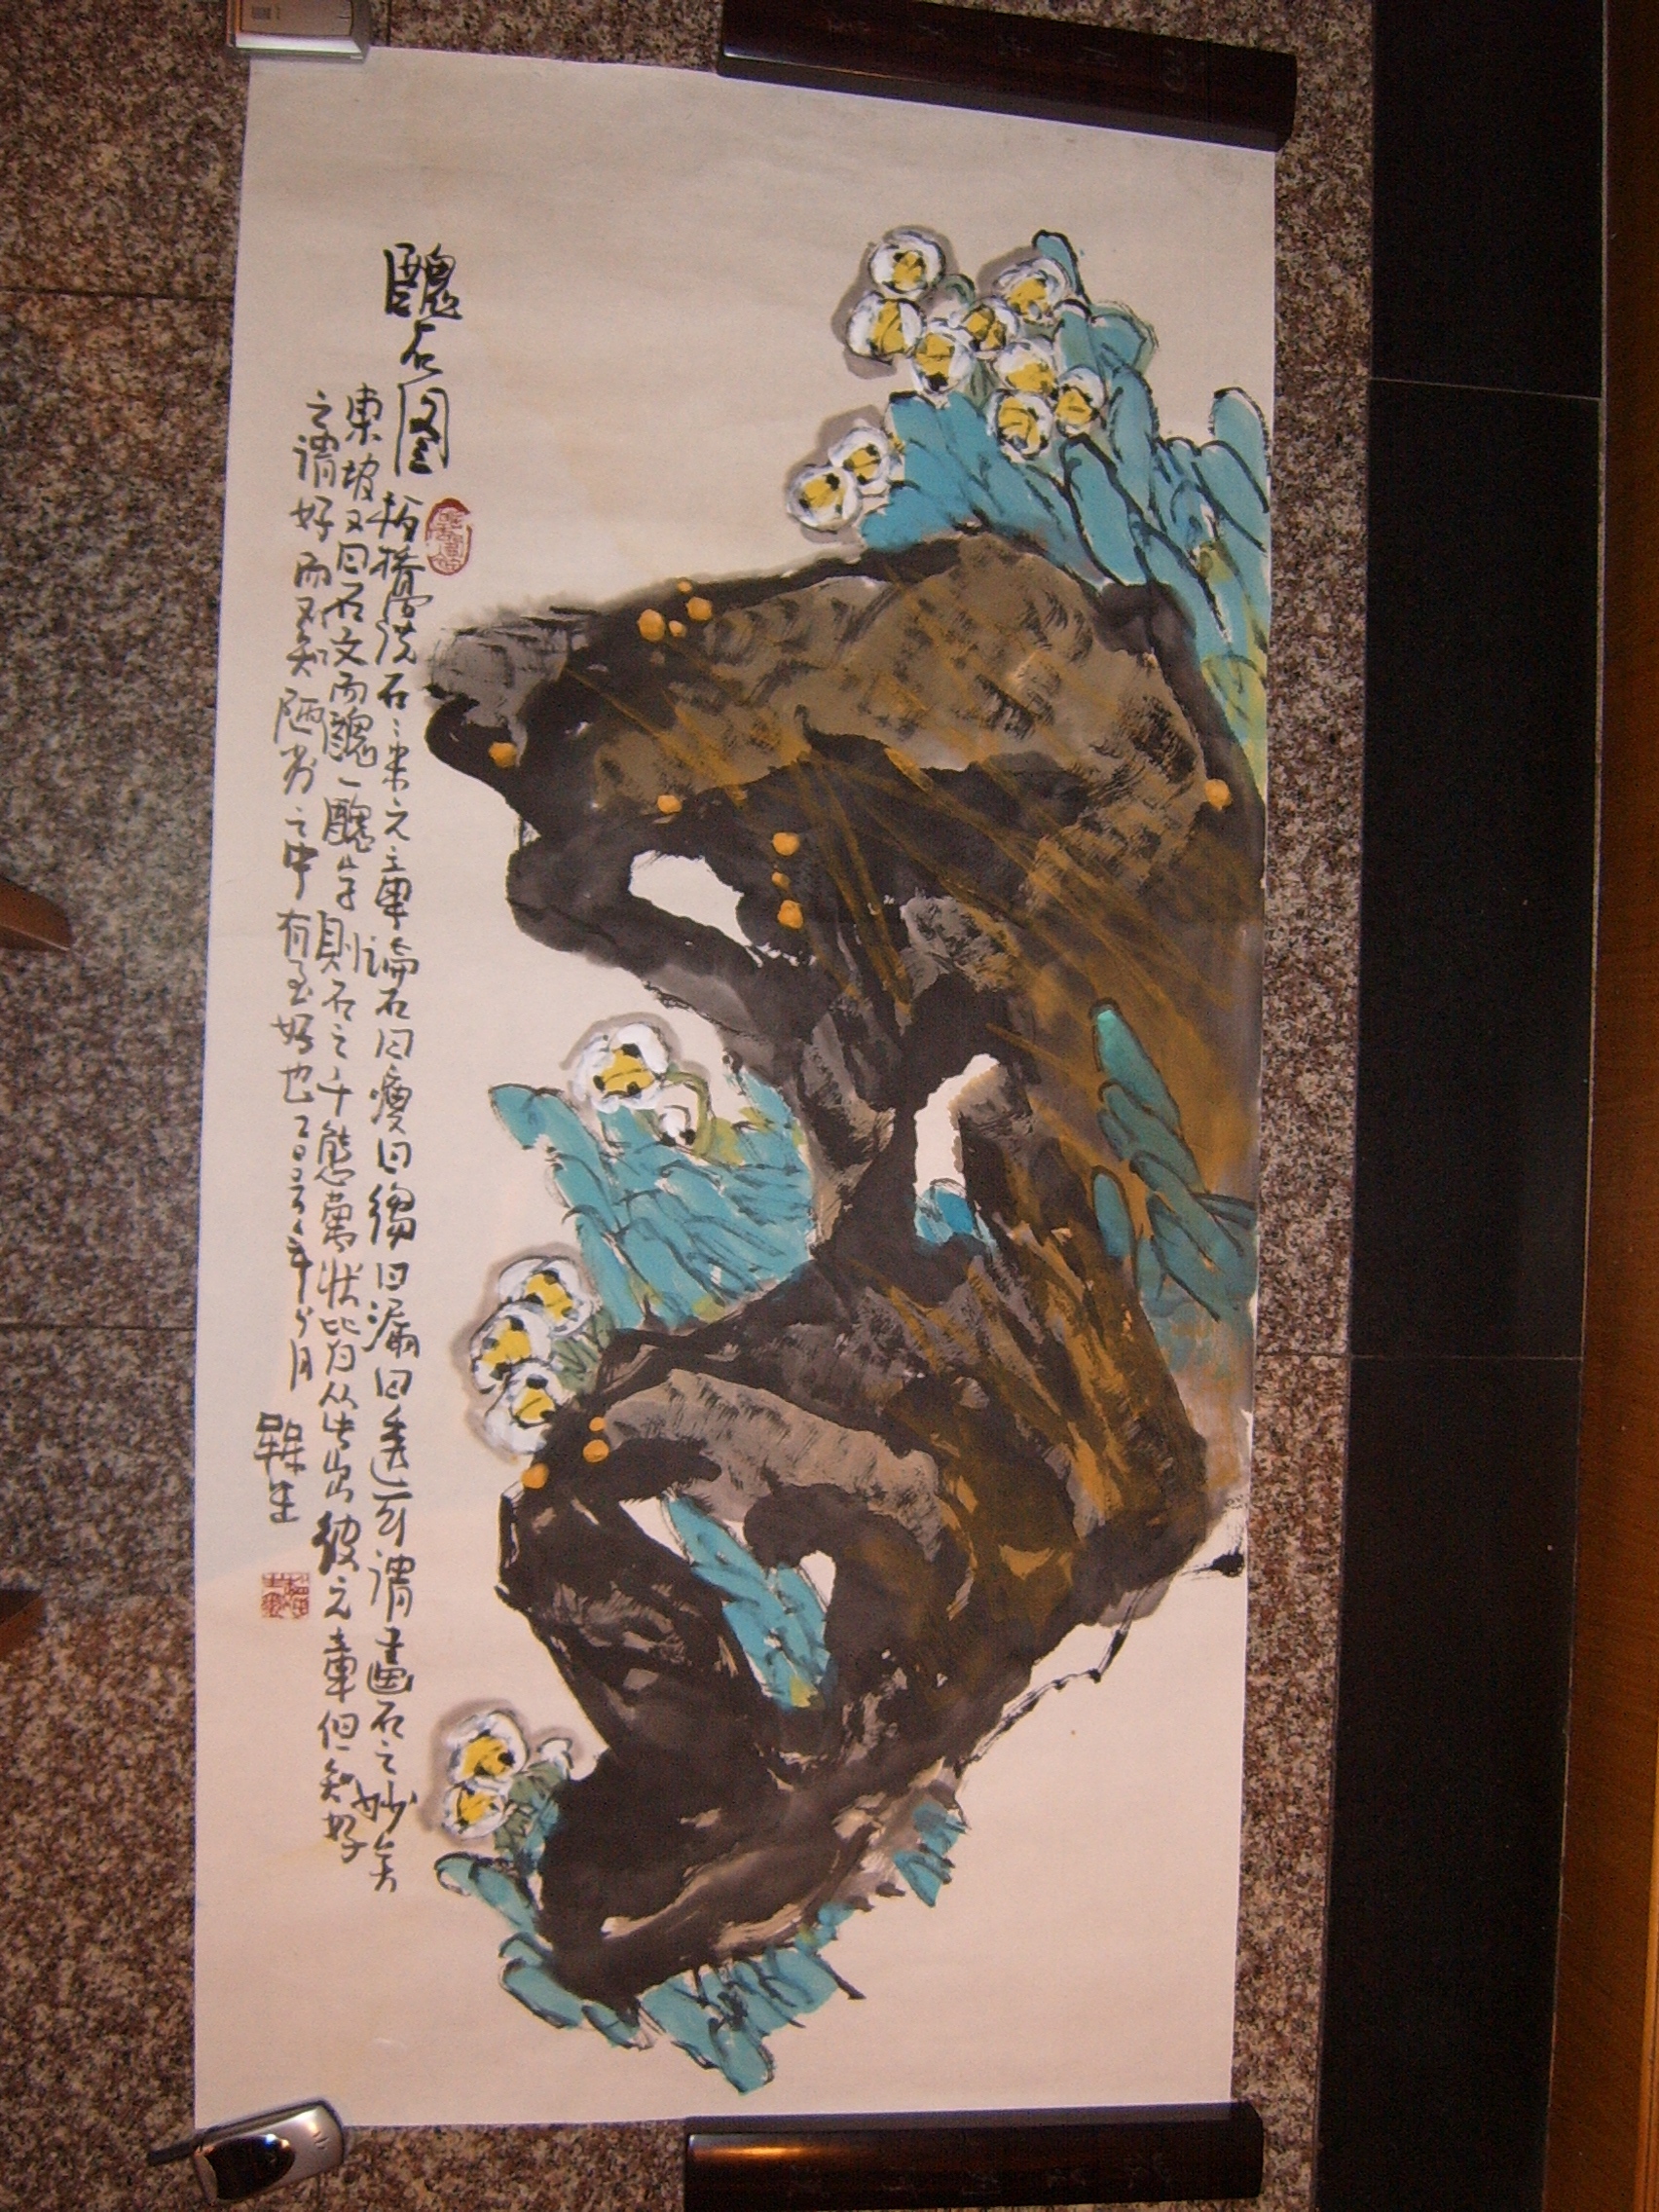 醜石图
板橋云說石：米元章論石曰瘦曰縐曰漏曰透可謂畫石之妙矣
東坡又曰石文而醜一醜字則石之千態萬狀皆从此出彼元章但知好
之謂好而不知陋劣之中有至好也二〇〇六年八月